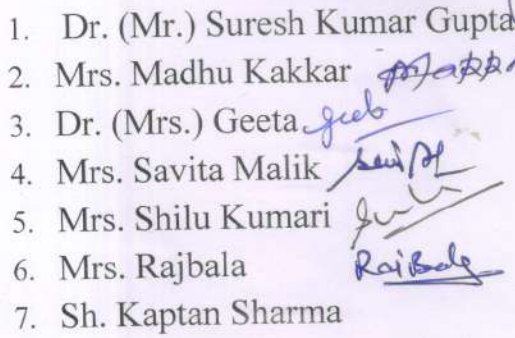 1. Dr. (Mr.) Suresh Kumar Gupta
2. Mrs. Madhu Kakkar
3. Dr. (Mrs.) Geeta
4. Mrs. Savita Malik
5. Mrs. Shilu Kumari
6. Mrs. Rajbala RajBala
7. Sh. Kaptan Sharma